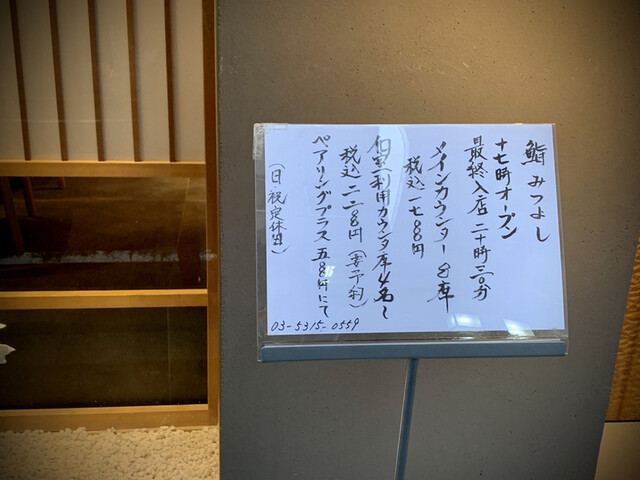 鮨 みつよし
十七時オープン
最終入店 二十時三〇分
メインカウンター 8席
税込 一七六〇〇円
個室(利用カウンター席4名〜
税込 二二〇〇〇円 (要予約)
ペアリングプラス 五五〇〇円にて
(日・祝定休日)
03-5315-0559